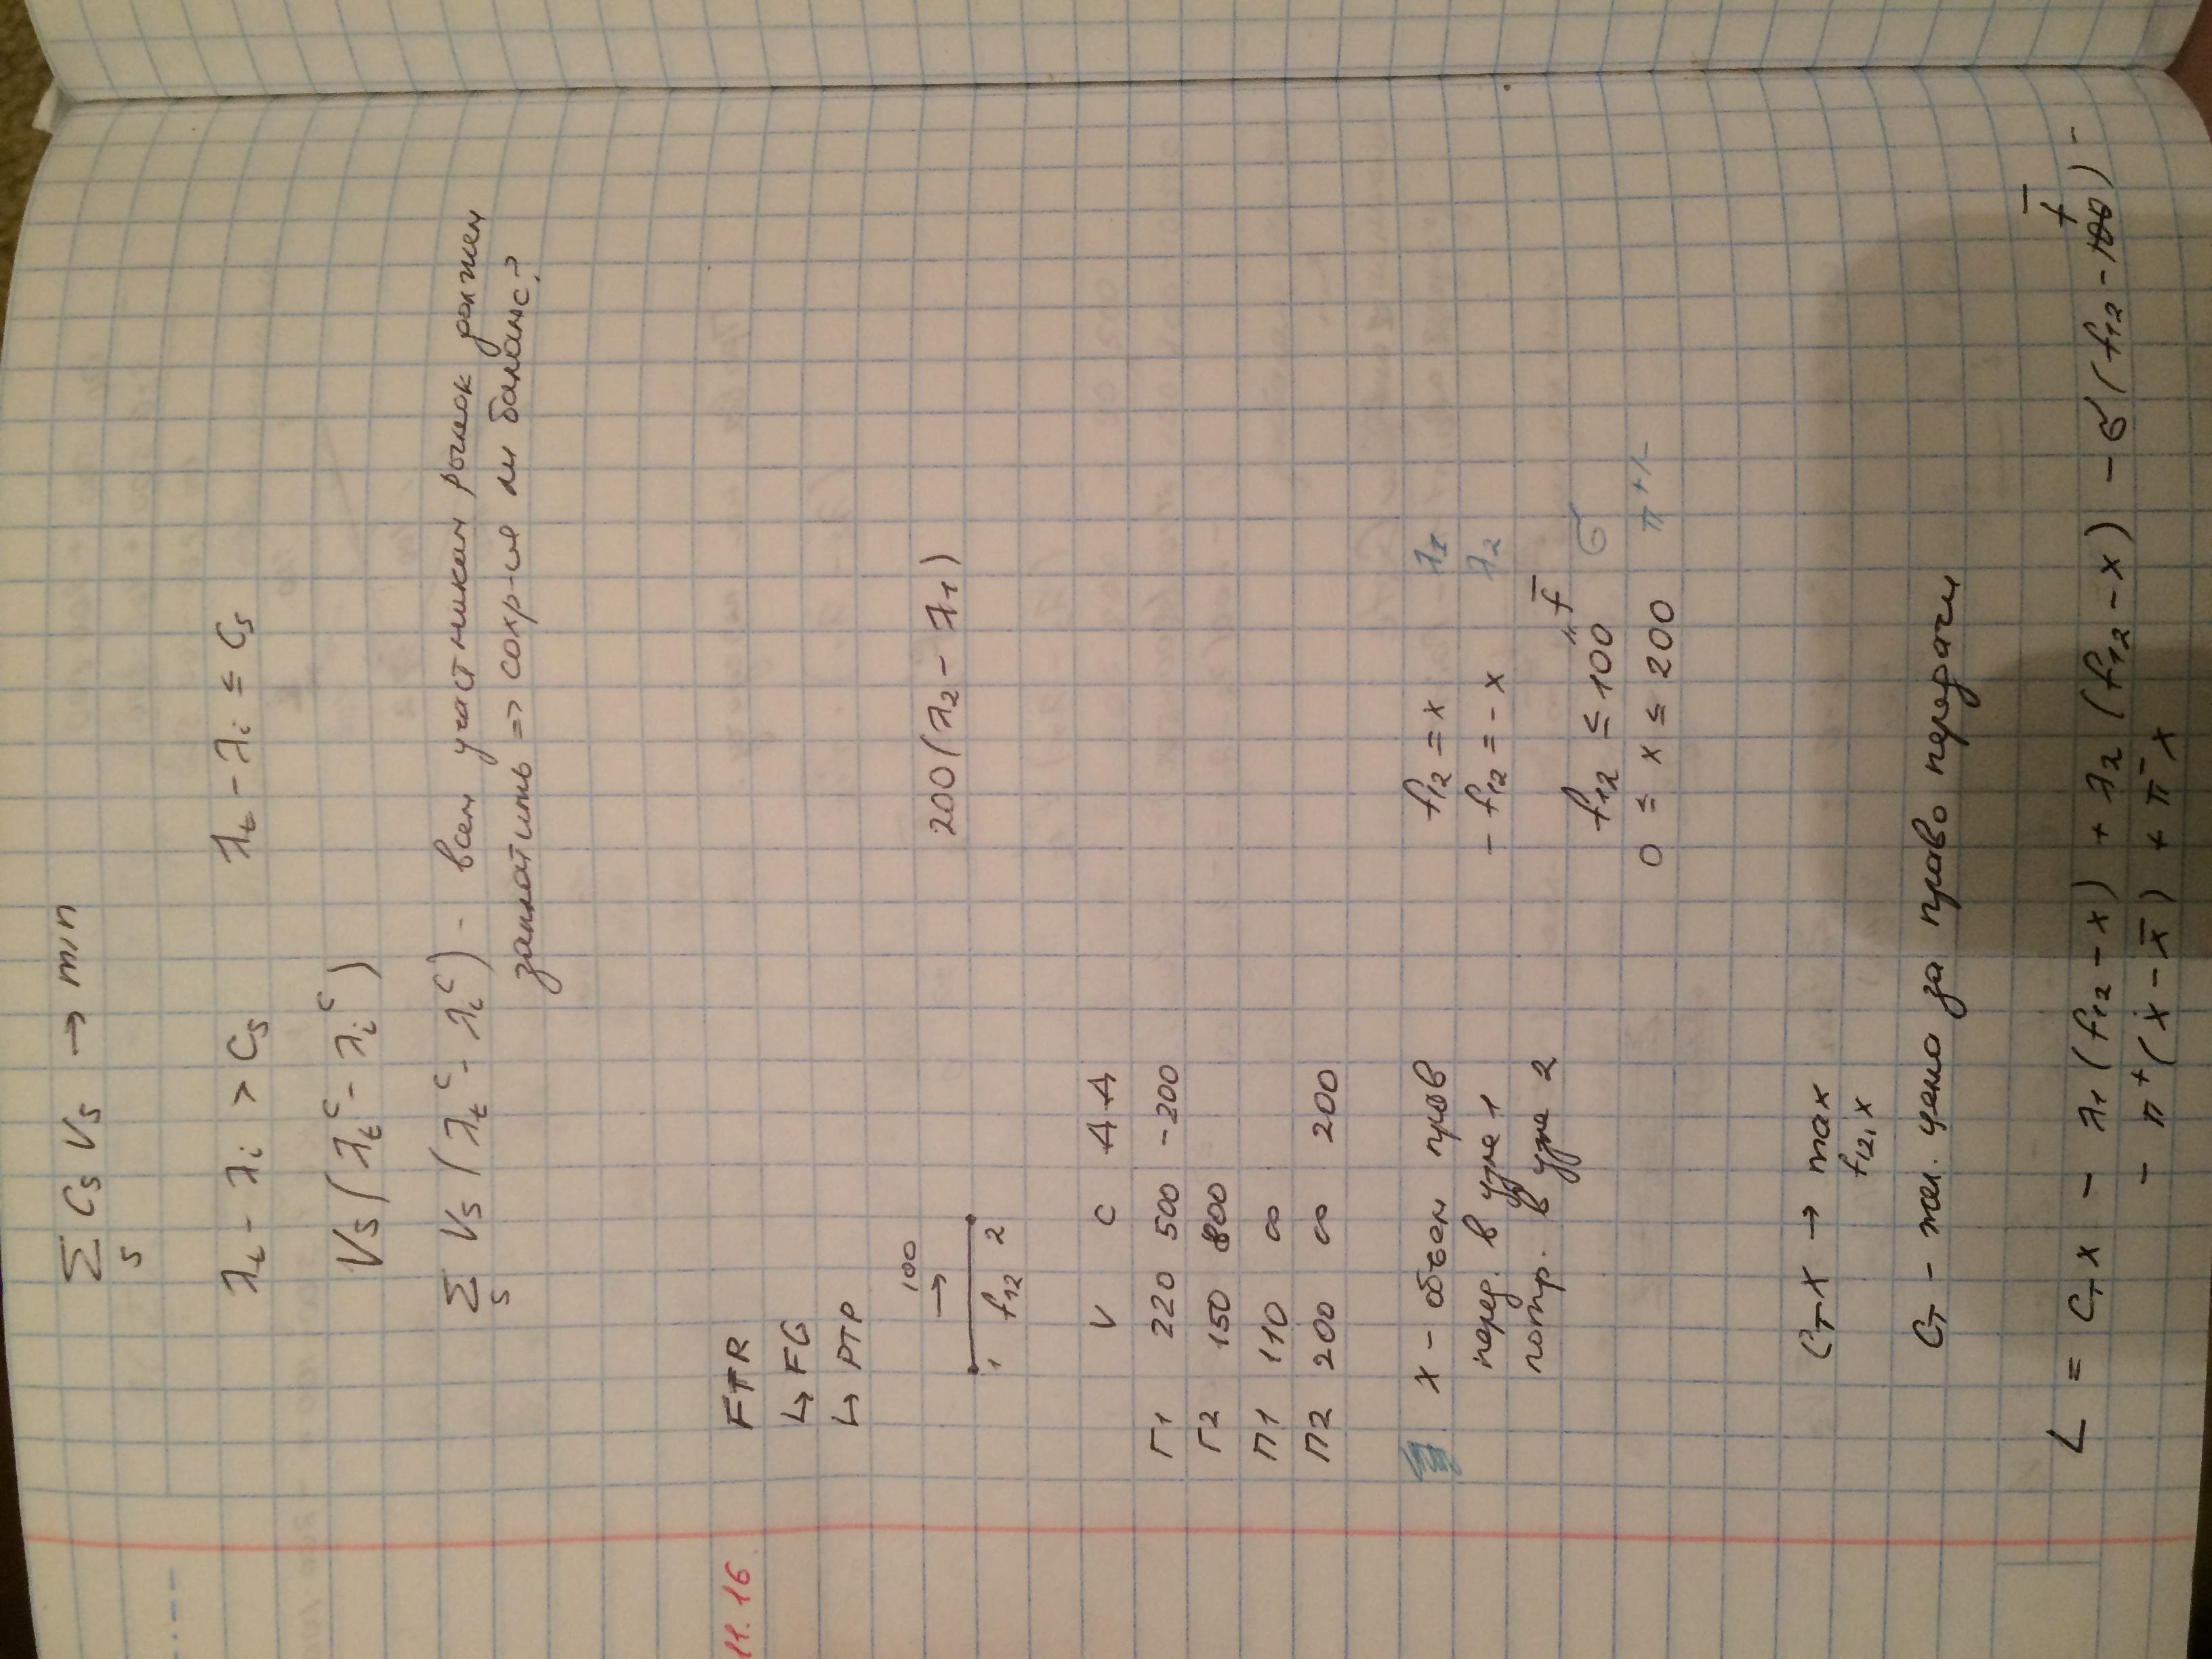 Σ_s C_s V_s → min
λ_t - λ_i > C_s    λ_t - λ_i ≤ C_s
V_s (λ_t^c - λ_i^c)
Σ_s V_s (λ_t^c - λ_i^c) - всем участникам рынок должен
заплатить => сохр-ся ли баланс?
11.16 FTR
↳ FG
↳ PTP
→ 100
1 f₁₂ 2    200(λ₂ - λ₁)
V C
Г1 220 500 -200
Г2 150 800
П1 110 ∞
П2 200 ∞ 200
x - объем прав    f₁₂ = x    λ₁
перед. в узле 1    - f₁₂ = - x    λ₂
потр. в узле 2    f₁₂ ≤ 100 " f̄    σ
0 ≤ x ≤ 200    π +/-
C_T x → max
f₁₂, x
C_T - жел. цена за право передачи
L = C_T x - λ₁ (f₁₂ - x) + λ₂ (f₁₂ - x) - σ (f₁₂ - f̄) -
- π⁺ (x - x̄) + π⁻ x